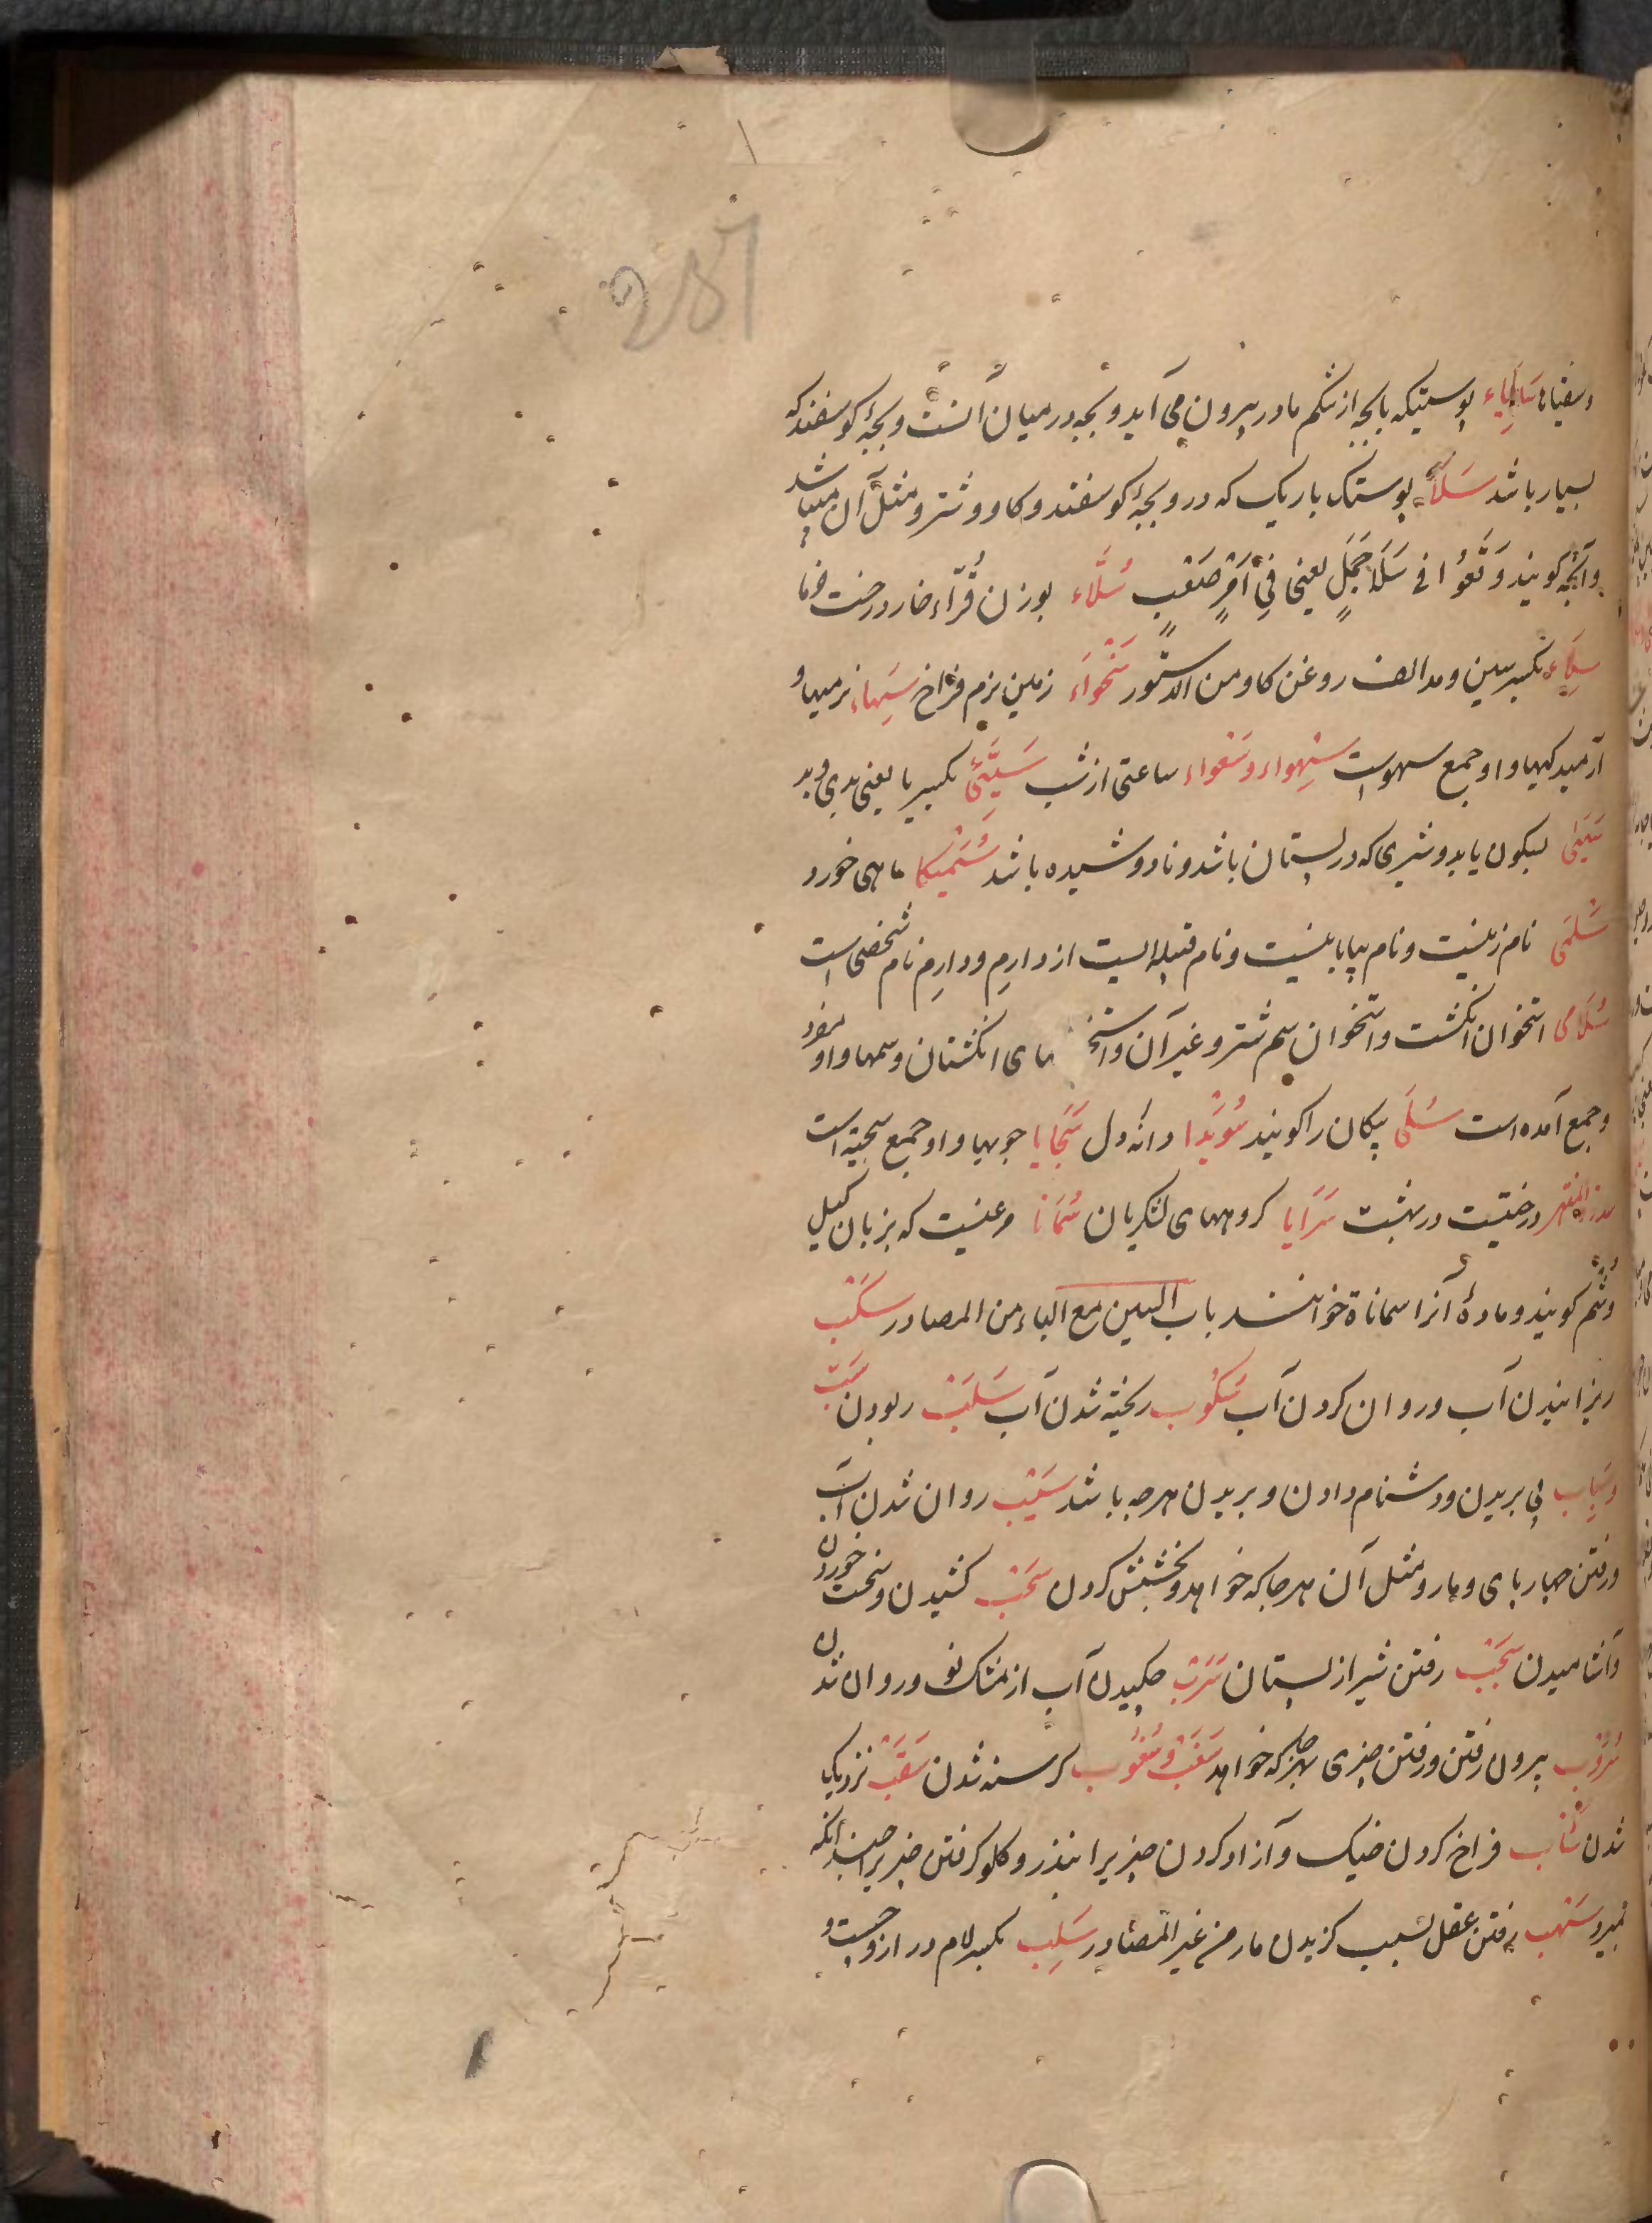 وسفیاها سابیاء پوستیکه با بچه از شکم مادر بیرون می آید و بچه در میان آنست و بچهٔ کوسفند که
بسیار باشد سَلاً پوستک باریک که در و بچهٔ کوسفند و کاو و شتر و مثل آن میباشد
و آنچه کویند وَقَعُوا فی سَلَا جَمَلٍ یعنی فِی اَمْرٍ صَعْبٍ سُلَّاء بوزن قُرّاء خار درخت خرما
سِلاء بکسر سین و مد الف روغن کاو من الدستور سَخْواء زمین نرم فراخ سِهاء نرمیها و
آرمیدکیها و او جمع سهوست سِهواء و سَعواء ساعتی از شب سَیِّئ بکسر یا یعنی بدی و بد
سَیْئ بسکون یا بد و شیری که در پستان باشد و نادوشیده باشد سُمَیکا ماهی خورد
سَلمَی نام زنیست و نام بیابانیست و نام قبیله ایست از دارِم و دارِم نام شخصی است
سُلَامی استخوان انکشت و استخوان سم شتر و غیر آن و استخ های انکشتان و سمها و او مفرد
و جمع آمده است سُلَی پیکان را کویند سُوَیدا دانه دل سَجَایا خویها و او جمع سجیة است
سدرة المنتهی درختیست در بهشت سَرَایا کروههای لشکریان سُمَانا مرغیست که بزبان کیلی
وُشُم کویند و مادهٔ آنرا سماناة خوانند باب السین مع الباء من المصادر سَکْب
ریزانیدن آب و روان کردن آب سُکُوب ریخته شدن آب سَلَب ربودن سَبّ
وسِباب پی بریدن و دشنام دادن و بریدن هرچه باشد سَیْب روان شدن آب
و رفتن چهارپای و مار و مثل آن هرجا که خواهد و بخشش کردن سَحْب کشیدن و سخت خوردن
و آشامیدن سَجْب رفتن شیر از پستان سَرَب چکیدن آب از مشک نو و روان شدن
سُرُوب بیرون رفتن و رفتن چیزی بهرجا که خواهد سَغَب و سُغُوب کرسنه شدن سَقَب نزدیک
شدن سَأب فراخ کردن خیک و آزاد کردن چیزی را بنذر و کلو کرفتن چیزیرا چندانکه
بمیرد سَهب رفتن عقل بسبب کزیدن مار من غیر المصادر سَلِب بکسر لام دراز و چست و